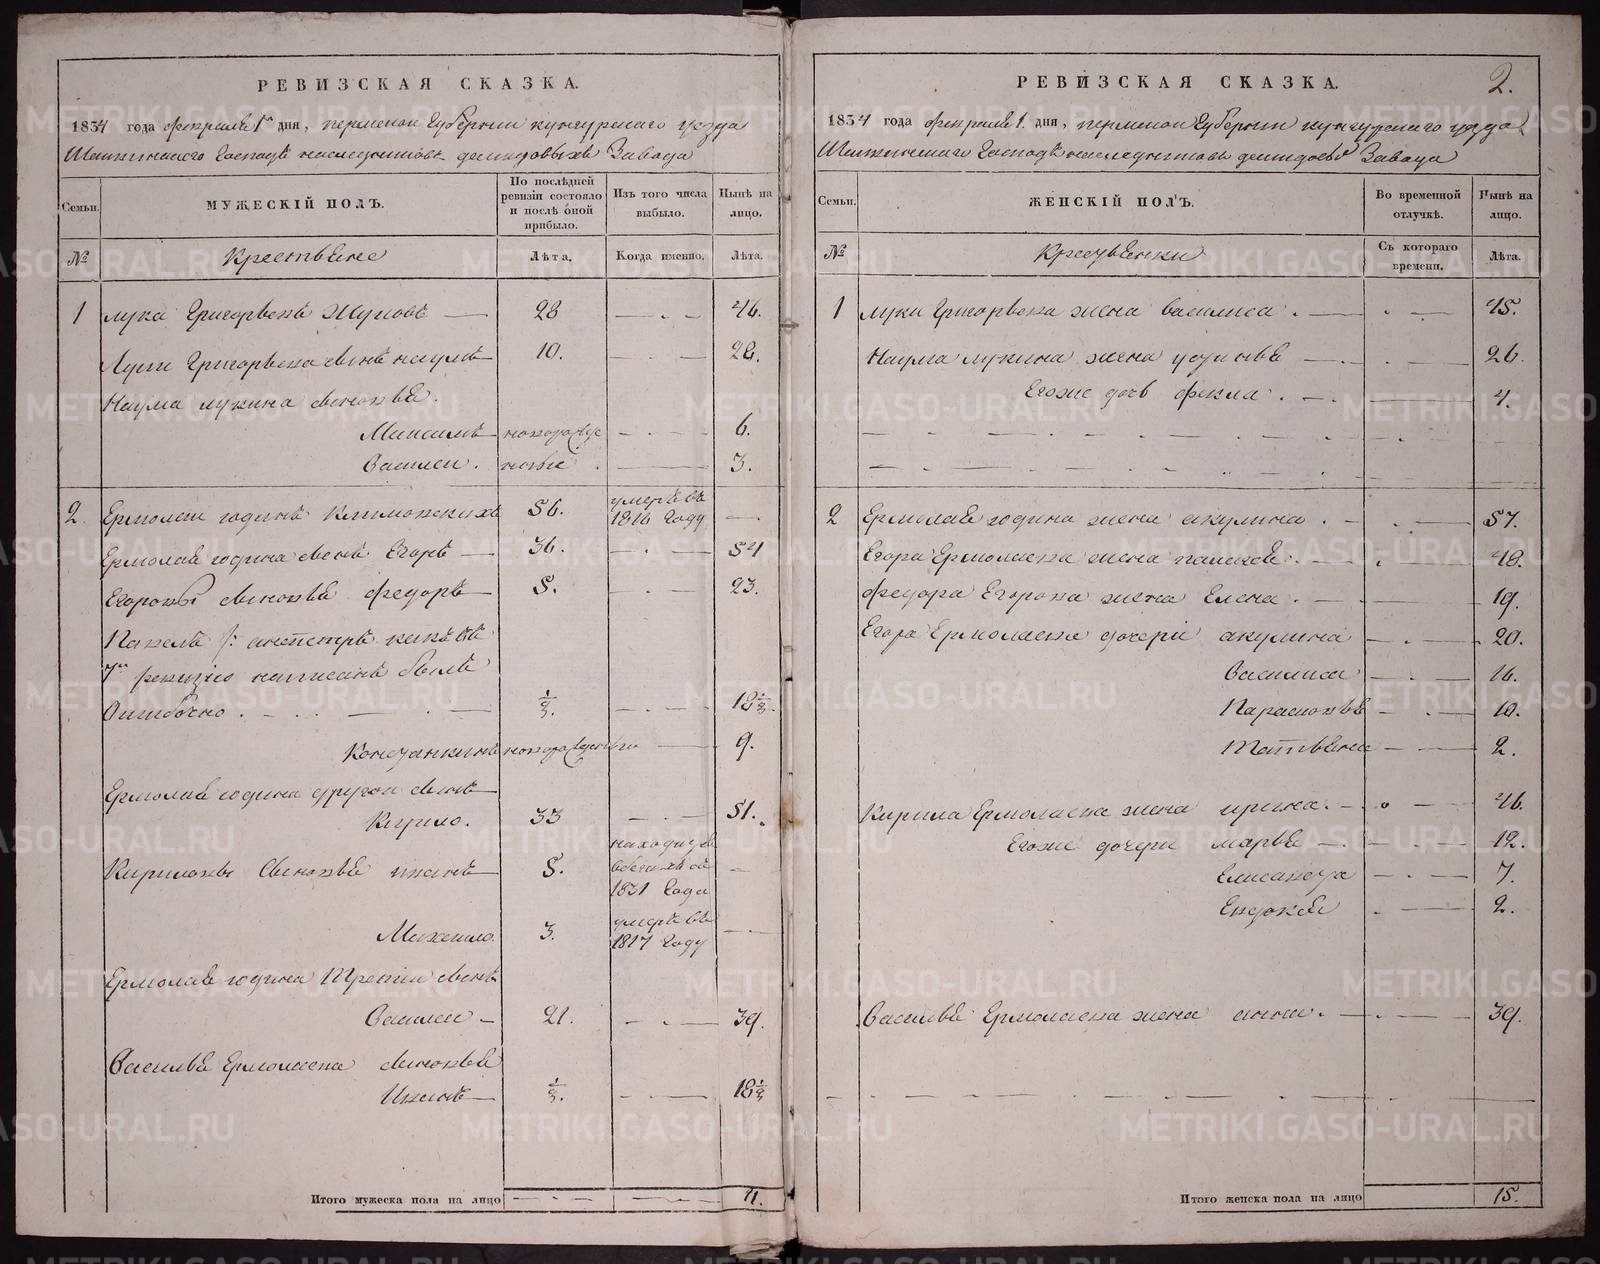 РЕВИЗСКАЯ СКАЗКА.
1834 года февраля 1го дня, пермской Губернии кунгурскаго уезда
Шайтанскаго Господъ наследниковъ демидовыхъ Завода
Семьи.
МУЖЕСКІЙ ПОЛЪ.
По послѣдней ревизіи состояло и послѣ оной прибыло.
Изъ того числа выбыло.
Нынѣ на лицо.
№
Крестьяне
Лѣта.
Когда именно.
Лѣта.
1 лука Григорьевъ 28 46.
луки Григорьева сынъ наумъ 10. 28.
Наума лукина сыновья.
Максимъ новорожде 6.
Василеи. новые 3.
2. Ермолаи годинъ 56. умеръ въ 1816 Году
Ермолая година сынъ Егоръ 36. 54
Егоровы сыновья федоръ 5. 23.
Павелъ
7ю ревизію написанъ былъ
Ошибочно 18
новорожденныи 9.
Ермолая година другои сынъ
Кирило. 33 51.
Кириловы Сыновья иванъ 5. находится въ бегахъ съ 1831 Года
Михаило. 3. умеръ въ 1817 Году
Ермолая година Третіи сынъ
Василеи 21. 39.
Василья Ермолаева сыновья
Иванъ 18
Итого мужеска пола на лицо 11.
РЕВИЗСКАЯ СКАЗКА.
2.
1834 года февраля 1. дня, пермской Губернии кунгурскаго уезда
Господъ наследниковъ демидовыхъ Завода
Семьи.
ЖЕНСКІЙ ПОЛЪ.
Во временной отлучкѣ.
Нынѣ на лицо.
№
Крестьянки
Съ котораго времени.
Лѣта.
1 луки Григорьева жена василиса 45.
Наума лукина жена устинья 26.
Егоже дочь фекла 4.
2 Ермолая година жена акулина 57.
Егора Ермолаева жена пелагея 48.
федора Егорова жена Елена 19.
Егора Ермолаева дочери акулина 20.
Василиса 16.
Парасковья 10.
Татьяна 2.
Кирила Ермолаева жена ирина 46.
Егоже дочери марья 12.
Елисавета 7.
Евдокея 2.
Василья Ермолаева жена анна 39.
Итого женска пола на лицо 15.
METRIKI.GASO-URAL.RU